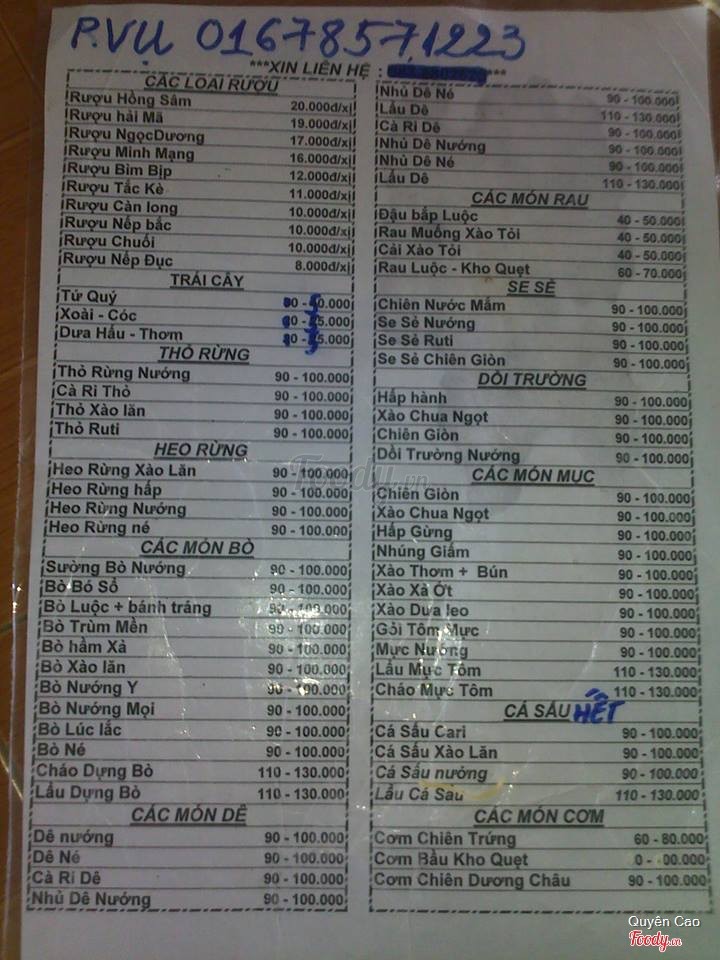 P.VỤ 01678571223
***XIN LIÊN HỆ : ***
CÁC LOẠI RƯỢU
Rượu Hồng Sâm 20.000đ/xị
Rượu hải Mã 19.000đ/xị
Rượu NgọcDương 17.000đ/xị
Rượu Minh Mạng 16.000đ/xị
Rượu Bìm Bịp 12.000đ/xị
Rượu Tắc Kè 11.000đ/xị
Rượu Càn long 10.000đ/xị
Rượu Nếp bắc 10.000đ/xị
Rượu Chuối 10.000đ/xị
Rượu Nếp Đục 8.000đ/xị
TRÁI CÂY
Tứ Quý
Xoài - Cóc
Dưa Hấu - Thơm
THỎ RỪNG
Thỏ Rừng Nướng 90 - 100.000
Cà Ri Thỏ 90 - 100.000
Thỏ Xào lăn 90 - 100.000
Thỏ Ruti 90 - 100.000
HEO RỪNG
Heo Rừng Xào Lăn 90 - 100.000
Heo Rừng hấp 90 - 100.000
Heo Rừng Nướng 90 - 100.000
Heo Rừng né 90 - 100.000
CÁC MÓN BÒ
Sường Bò Nướng 90 - 100.000
Bò Bó Sổ 90 - 100.000
Bò Luộc + bánh tráng 90 - 100.000
Bò Trùm Mền 90 - 100.000
Bò hầm Xả 90 - 100.000
Bò Xào lăn 90 - 100.000
Bò Nướng Y 90 - 100.000
Bò Nướng Mọi 90 - 100.000
Bò Lúc lắc 90 - 100.000
Bò Né 90 - 100.000
Cháo Dựng Bò 110 - 130.000
Lẩu Dựng Bò 110 - 130.000
CÁC MÓN DÊ
Dê nướng 90 - 100.000
Dê Né 90 - 100.000
Cà Ri Dê 90 - 100.000
Nhủ Dê Nướng 90 - 100.000
Nhủ Dê Né 90 - 100.000
Lẩu Dê 110 - 130.000
Cà Ri Dê 90 - 100.000
Nhủ Dê Nướng 90 - 100.000
Nhủ Dê Né 90 - 100.000
Lẩu Dê 110 - 130.000
CÁC MÓN RAU
Đậu bắp Luộc 40 - 50.000
Rau Muống Xào Tỏi 40 - 50.000
Cải Xào Tỏi 40 - 50.000
Rau Luộc - Kho Quẹt 60 - 70.000
SE SẺ
Chiên Nước Mắm 90 - 100.000
Se Sẻ Nướng 90 - 100.000
Se Sẻ Ruti 90 - 100.000
Se Sẻ Chiên Giòn 90 - 100.000
DỒI TRƯỜNG
Hấp hành 90 - 100.000
Xào Chua Ngọt 90 - 100.000
Chiên Giòn 90 - 100.000
Dồi Trường Nướng 90 - 100.000
CÁC MÓN MỰC
Chiên Giòn 90 - 100.000
Xào Chua Ngọt 90 - 100.000
Hấp Gừng 90 - 100.000
Nhúng Giấm 90 - 100.000
Xào Thơm + Bún 90 - 100.000
Xào Xả Ớt 90 - 100.000
Xào Dưa leo 90 - 100.000
Gỏi Tôm Mực 90 - 100.000
Mực Nướng 90 - 100.000
Lẩu Mực Tôm 110 - 130.000
Cháo Mực Tôm 110 - 130.000
CÁ SẤU HẾT
Cá Sấu Cari 90 - 100.000
Cá Sấu Xào Lăn 90 - 100.000
Cá Sấu nướng 90 - 100.000
Lẩu Cá Sấu 110 - 130.000
CÁC MÓN CƠM
Cơm Chiên Trứng 60 - 80.000
Cơm Bầu Kho Quẹt
Cơm Chiên Dương Châu 90 - 100.000
Foody.vn
Quyên Cao
Foody.vn